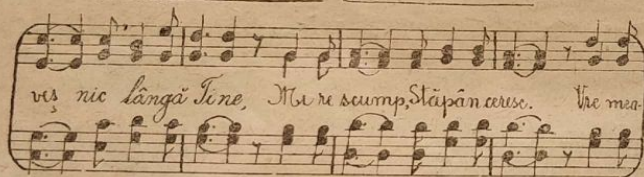 veș nic lângă Tine, Mi re scump, Stăpân ceresc. Vre mea